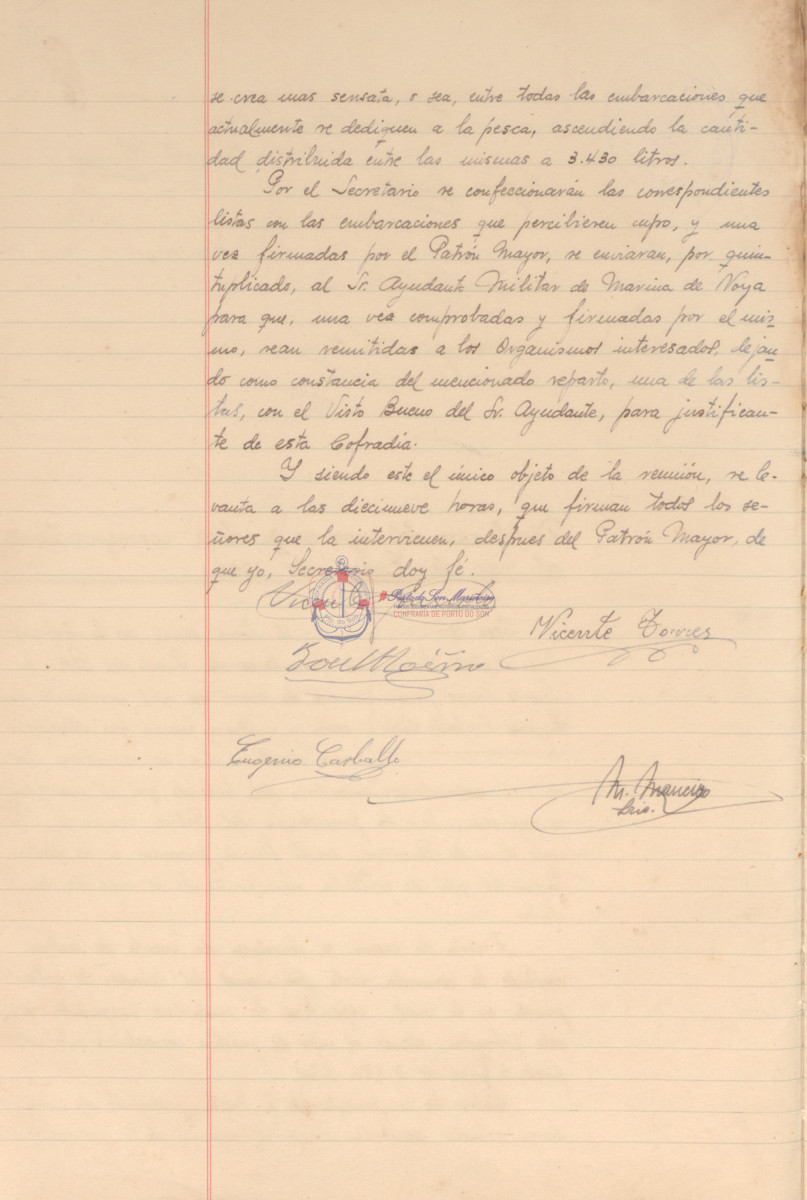 se crea mas sensata, o sea, entre todas las embarcaciones que
actualmente se dediquen a la pesca, ascendiendo la canti-
dad distribuida entre las mismas a 3.430 litros.
Por el Secretario se confeccionarán las correspondientes
listas con las embarcaciones que percibieren cupo, y una
vez firmadas por el Patrón Mayor, se enviaran, por quin-
tuplicado, al Sr. Ayudante Militar de Marina de Noya
para que, una vez comprobadas y firmadas por el mis-
mo, sean remitidas a los Organismos interesados, dejan-
do como constancia del mencionado reparto, una de las lis-
tas, con el Visto Bueno del Sr. Ayudante, para justifican-
te de esta Cofradía.
Y siendo este el único objeto de la reunión, se le-
vanta a las diecinueve horas, que firman todos los se-
ñores que la intervienen, despues del Patrón Mayor, de
que yo, Secretario doy fé.
CONFRARÍA DE PORTO DO SON
Vicente Torres
Eugenio Carballo
M. Maneiro
Srio.